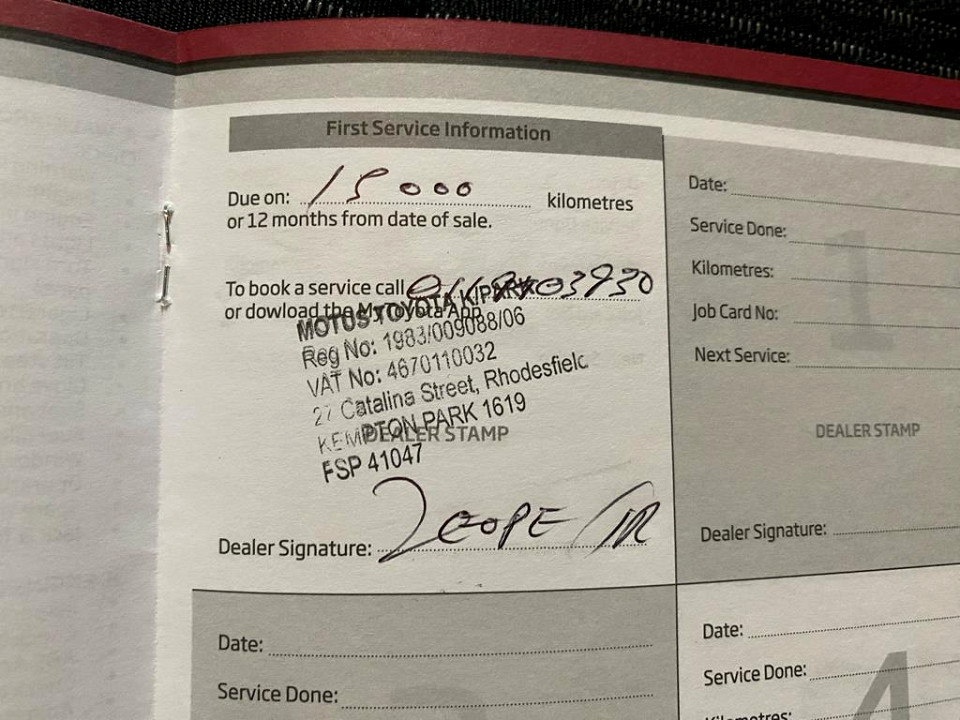 First Service Information
Due on: 15 000 kilometres
or 12 months from date of sale.
To book a service call
or dowload the MyToyota App
MOTUS TOYOTA K/PARK
Reg No: 1983/009088/06
VAT No: 4670110032
27 Catalina Street, Rhodesfield
KEMPTON PARK 1619
DEALER STAMP
FSP 41047
Dealer Signature:
Date:
Service Done:
Kilometres:
Job Card No:
Next Service:
1
DEALER STAMP
Dealer Signature:
Date:
Service Done:
Date:
Service Done:
Kilometres:
4